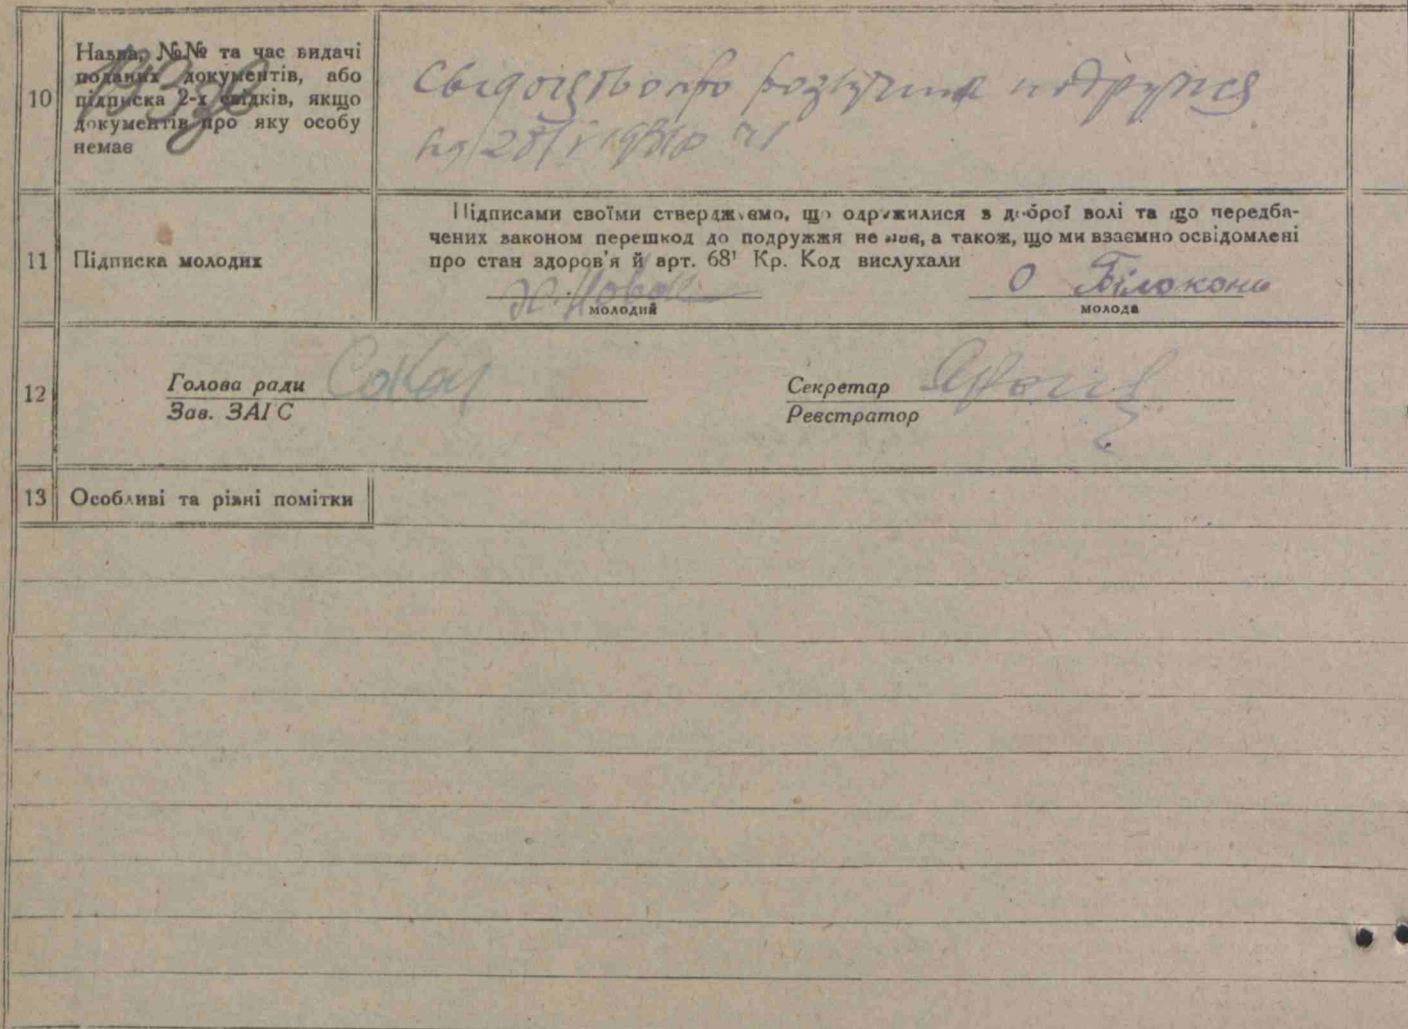 10
Назва, №№ та час видачі
поданих документів, або
підписка 2-х свідків, якщо
документів про яку особу
немає
Свідоцтво про
11
Підписка молодих
Підписами своїми стверджуємо, що одружилися з доброї волі та що передба-
чених законом перешкод до подружжя не має, а також, що ми взаємно освідомлені
про стан здоров'я й арт. 68¹ Кр. Код вислухали
О Білоконь
молодий
молода
12
Голова ради
Зав. ЗАГС
Секретар
Реєстратор
13
Особливі та різні помітки